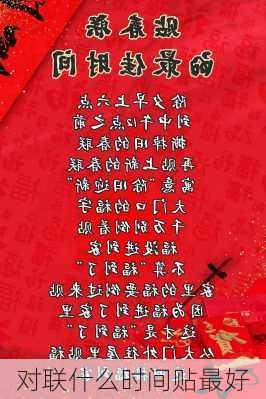 贴春联
的最佳时间
除夕早上六点
到中午12点之前
撕掉旧的春联
再贴上新的春联
寓意“除旧迎新”
大门口福字
千万别倒着贴
福没进家
不算“福到了”
家里的福要倒过来贴
因为福进到了家里
这才是“福到了”
从大门外往屋里贴福
对联什么时间贴最好